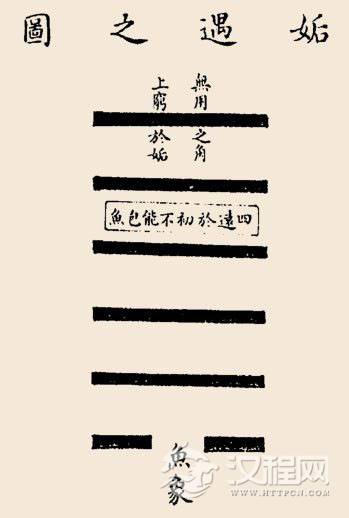 姤遇之圖
無用之角
上窮於姤
四遠於初不能包魚
魚象
汉程网
WWW.HTTPCN.COM